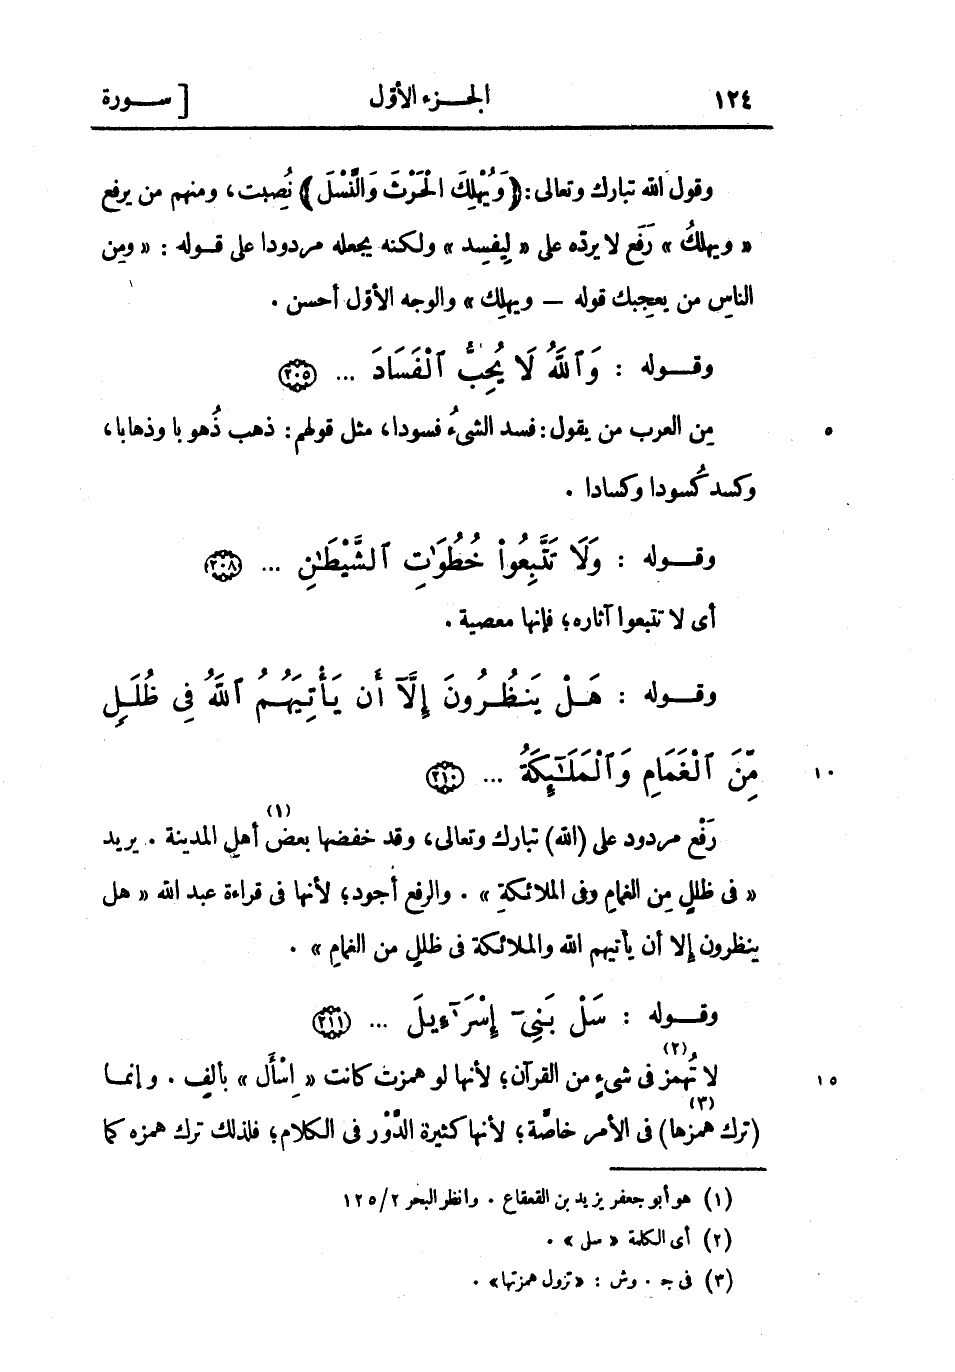 ١٢٤ الجـزء الأوّل [ ســورة
وقول الله تبارك وتعالى: ﴿وَيُهْلِكَ الْحَرْثَ وَالنَّسْلَ﴾ نُصِبت، ومنهم من يرفع
« ويهلكُ » رَفَع لا يردّه على « لِيفسد » ولكنه يجعله مردودا على قـوله : « ومِن
الناس من يعجبك قوله — ويهلك » والوجه الأوّل أحسن .
وقــوله : وَٱللَّهُ لَا يُحِبُّ ٱلْفَسَادَ ... ٢٠٥
٥ مِن العرب من يقول: فسد الشىءُ فسودا، مثل قولهم: ذهب ذُهوبا وذهابا،
وكسد كُسودا وكسادا .
وقــوله : وَلَا تَتَّبِعُوا۟ خُطُوَٰتِ ٱلشَّيْطَٰنِ ... ٢٠٨
أى لا تتبعوا آثاره؛ فإنها معصية .
وقــوله : هَـلْ يَنظُـرُونَ إِلَّآ أَن يَأْتِيَهُـمُ ٱللَّهُ فِى ظُلَـلٍ
١٠ مِّنَ ٱلْغَمَامِ وَٱلْمَلَٰٓئِكَةُ ... ٢١٠
رَفْع مردود على (الله) تبارك وتعالى، وقد خفضها بعض (١) أهلِ المدينة . يريد
« فى ظللٍ مِن الغمامِ وفى الملائكةِ » . والرفع أجود؛ لأنها فى قراءة عبد الله « هل
ينظرون إلا أن يأتيهم الله والملائكة فى ظللٍ من الغمامِ » .
وقــوله : سَلْ بَنِىٓ إِسْرَٰٓءِيلَ ... ٢١١
١٥ لا تُهمز (٢) فى شىءٍ من القرآن؛ لأنها لو همزت كانت « اِسْأَل » بألف . وإنمـا
(ترك همزها) (٣) فى الأمر خاصَّة؛ لأنها كثيرة الدَّوْر فى الكلام؛ فلذلك ترك همزه كما
(١) هو أبو جعفر يزيد بن القعقاع . وانظر البحر ١٢٥/٢
(٢) أى الكلمة « سل » .
(٣) فى جـ . وش : «تزول همزتها» .